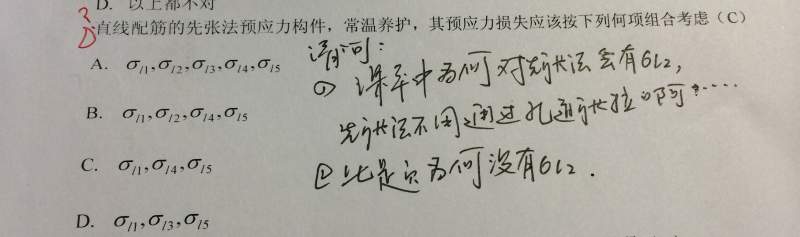 D. 以上都不对
2
D
直线配筋的先张法预应力构件，常温养护，其预应力损失应该按下列何项组合考虑（C）
A. σl1,σl2,σl3,σl4,σl5
B. σl1,σl2,σl4,σl5
C. σl1,σl4,σl5
D. σl1,σl3,σl5
请问：
① 课本中为何对先张法会有σl2,
先张法不用通过孔道张拉的啊？……
② 此题只为何没有σl2.